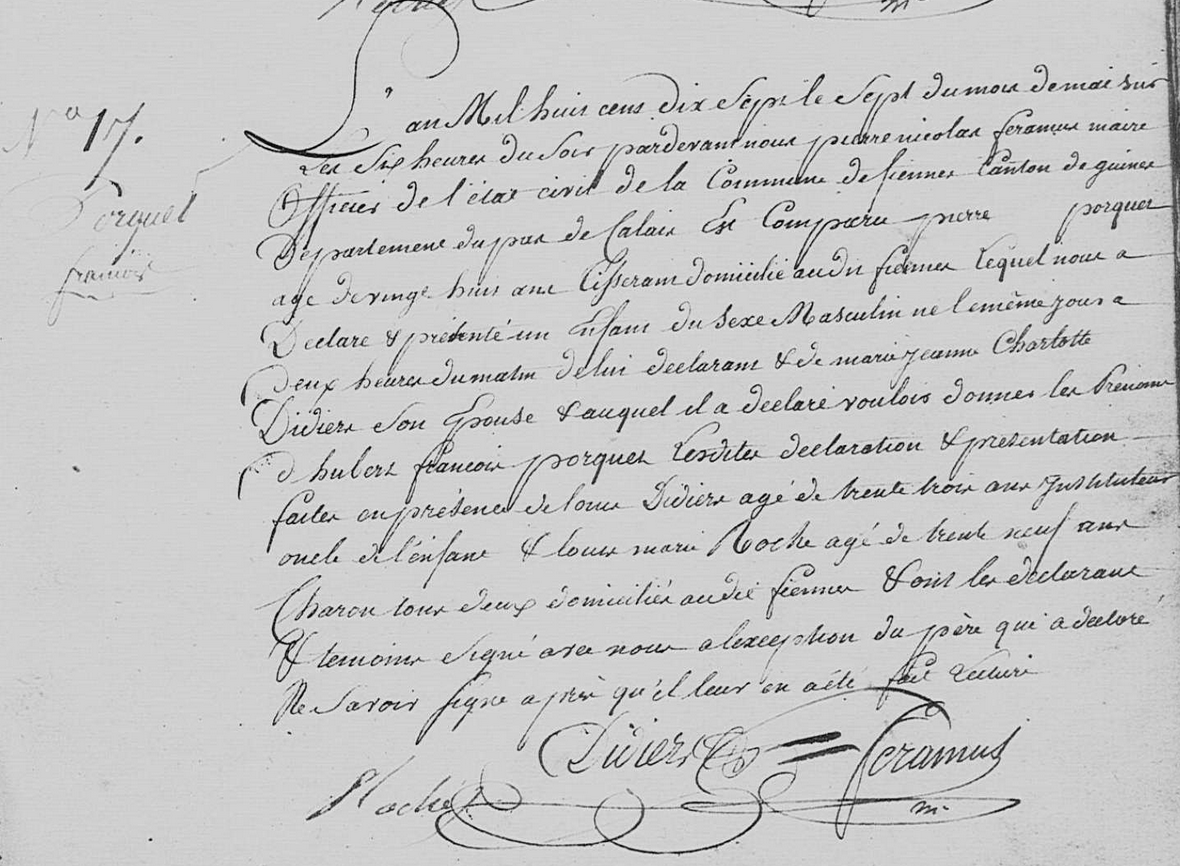 N° 17.
Porquet
francois
L'an Mil huit cens dix Sept le Sept du mois de mai sur
Les Six heures du Soir pardevant nous pierre nicolas feramus maire
Officier de l'état civil de la Commune de fiennes Canton de guines
Département du pas de Calais Est Comparu pierre porquet
age de vingt huit ans tisserant domicilié audit fiennes Lequel nous a
Declaré & présenté un Enfant du Sexe Masculin né le même jour a
Deux heures du matin de lui declarant & de marie jeanne Charlotte
Didiers Son Epouse & auquel il a declaré vouloir donner les Prenoms
d'hubert francois porquet Lesdites declaration & presentation
faites en présence de louis Didiers agé de trente trois ans Instituteur
oncle de l'enfant & louis marie Roche agé de trente neuf ans
Charon tous deux domiciliés audit fiennes & ont les declarant
& temoins Signé avec nous a lexception du père qui a declaré
Ne Savoir signe après qu'il leur en a été fait Lecture
Didiers Feramus
Roche m.